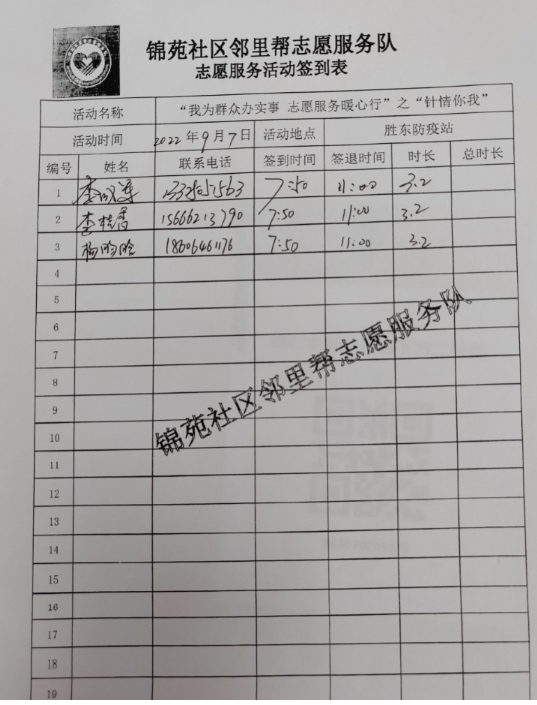 锦苑社区邻里帮志愿服务队
志愿服务活动签到表
活动名称 “我为群众办实事 志愿服务暖心行”之“针情你我”
活动时间 2022年9月7日 活动地点 胜东防疫站
编号 姓名 联系电话 签到时间 签退时间 时长 总时长
1 李 7:50 11:00 3.2
2 李桂香 15666213790 7:50 11:00 3.2
3 杨 7:50 11:00 3.2
4
5
6
7
8
9
10
11
12
13
14
15
16
17
18
19
锦苑社区邻里帮志愿服务队